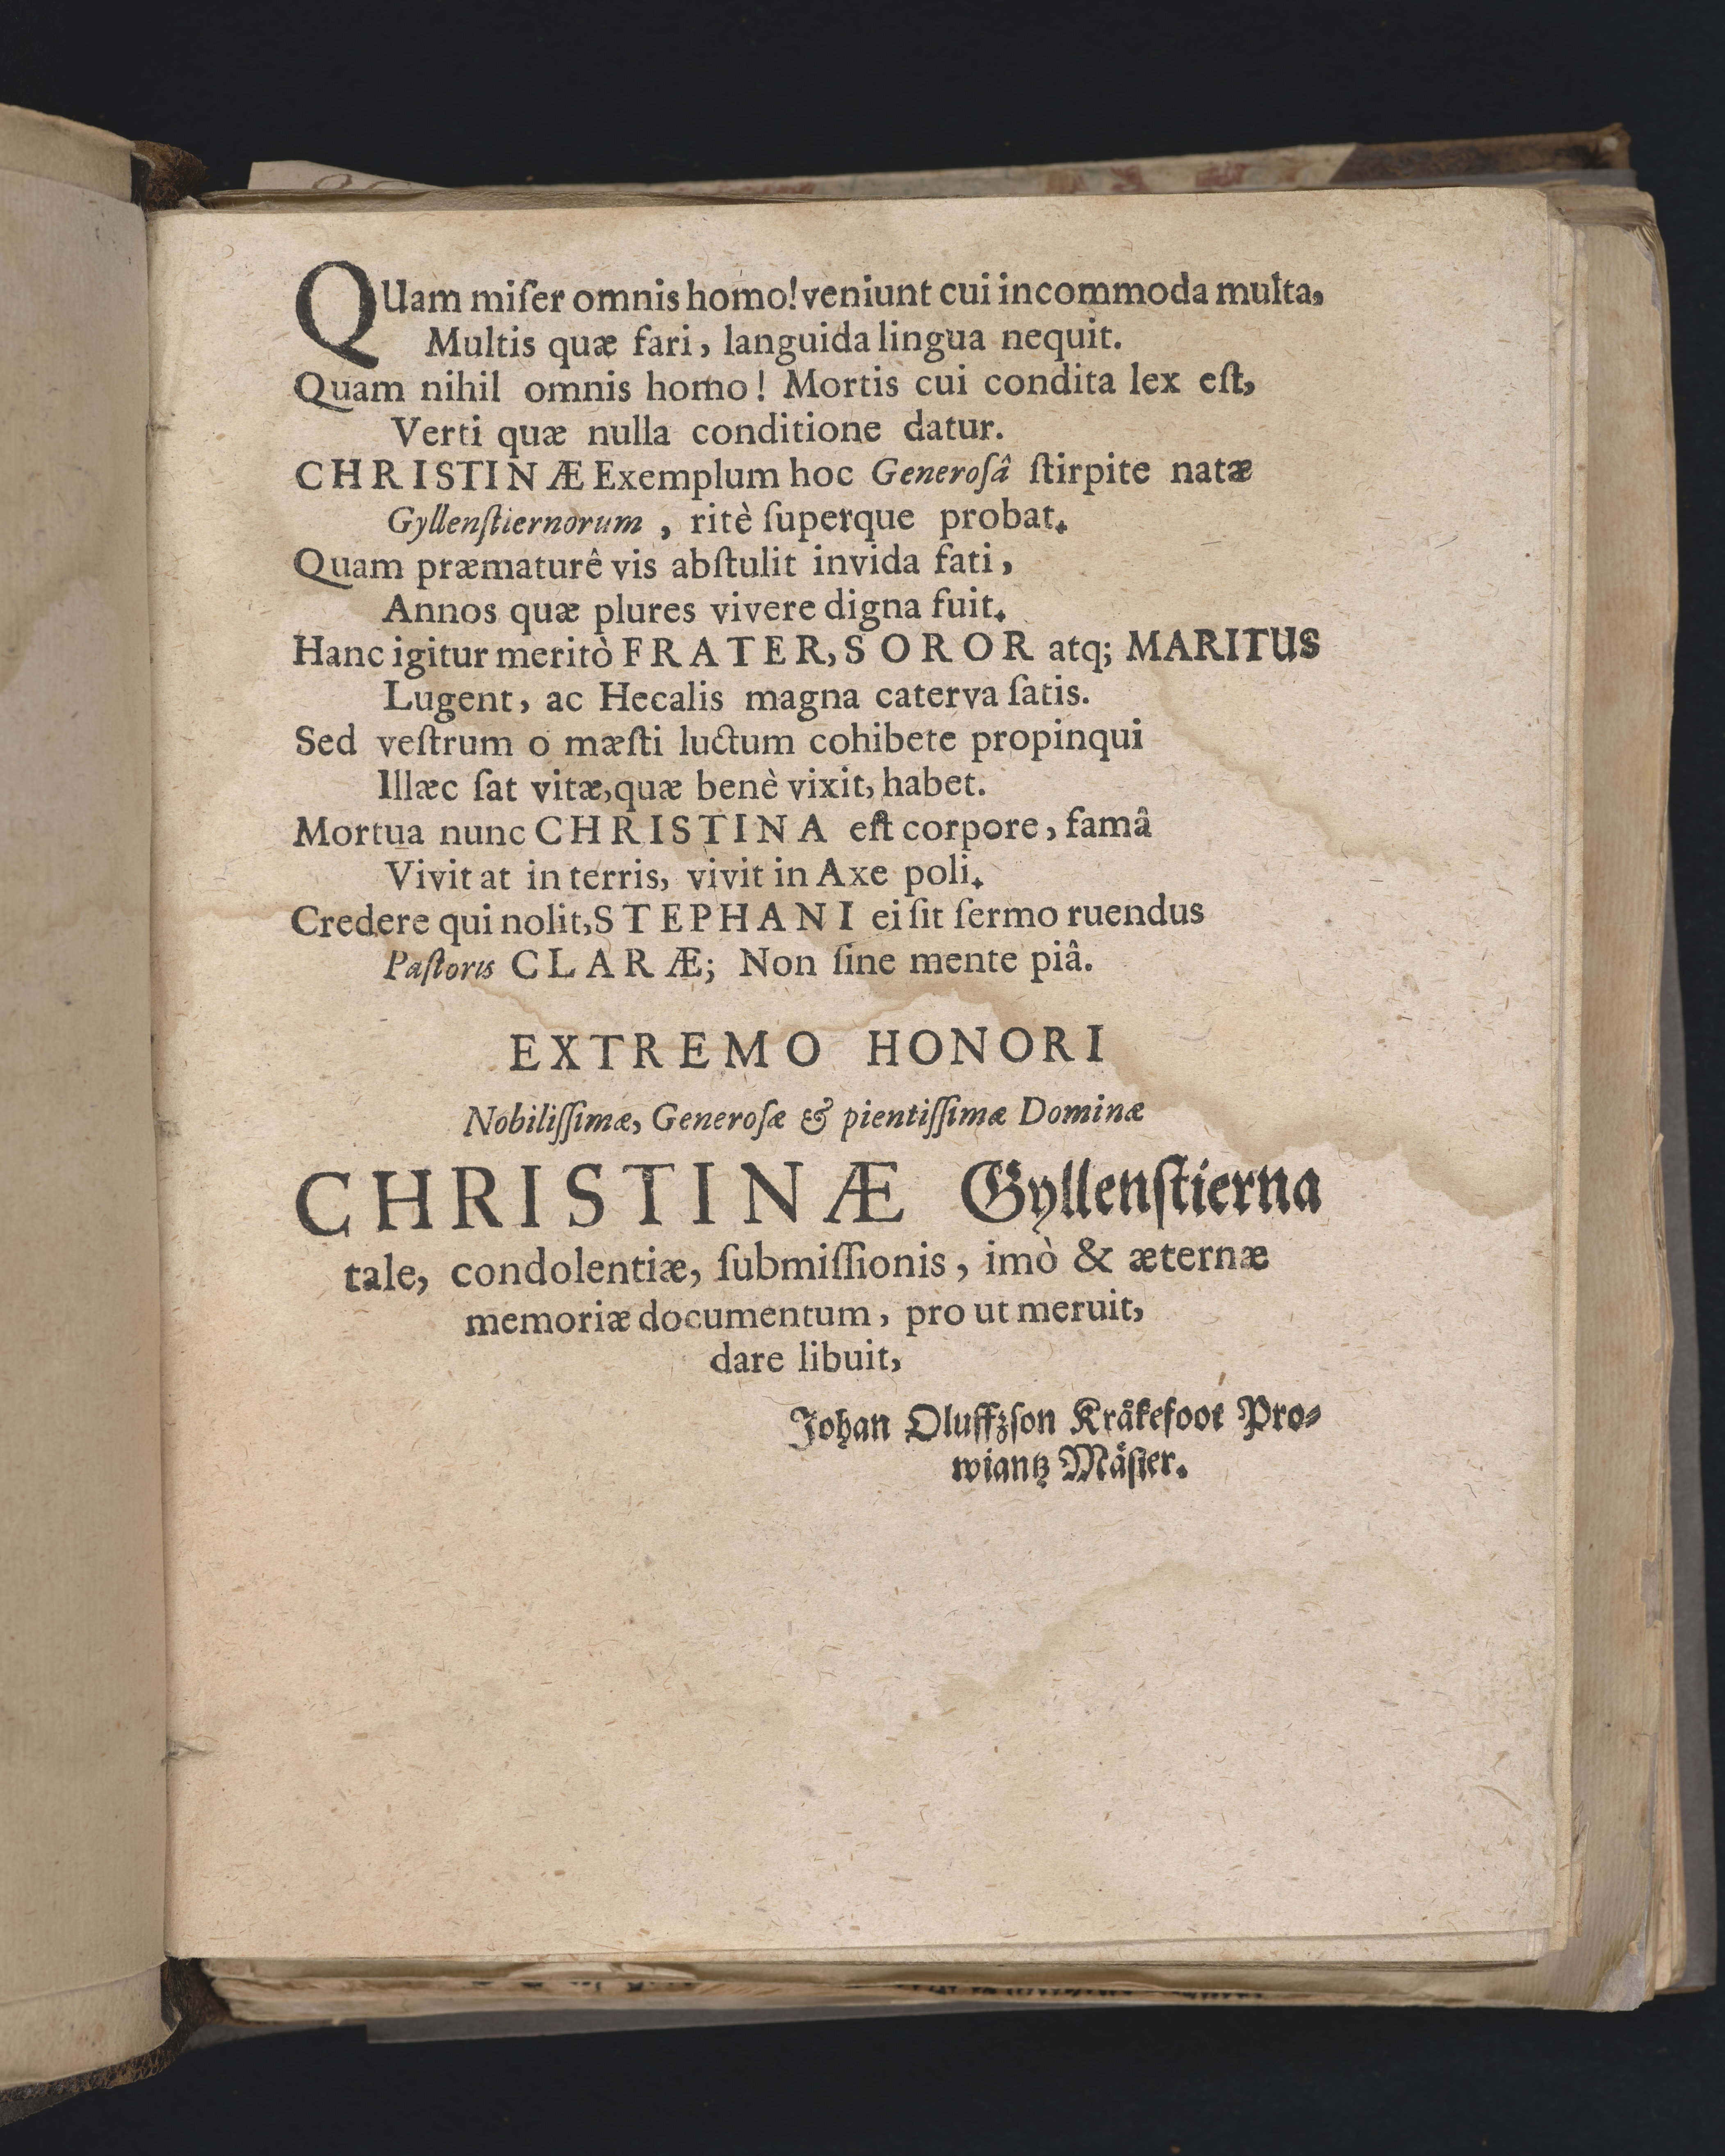 QUam miſer omnis homo! veniunt cui incommoda multa,
Multis quæ fari, languida lingua nequit.
Quam nihil omnis homo! Mortis cui condita lex eſt,
Verti quæ nulla conditione datur.
CHRISTINÆ Exemplum hoc Generoſâ ſtirpite natæ
Gyllenſtiernorum, ritè ſuperque probat.
Quam præmaturê vis abſtulit invida fati,
Annos quæ plures vivere digna fuit.
Hanc igitur meritò FRATER, SOROR atq; MARITUS
Lugent, ac Hecalis magna caterva ſatis.
Sed veſtrum o mæſti luctum cohibete propinqui
Illæc ſat vitæ, quæ benè vixit, habet.
Mortua nunc CHRISTINA eſt corpore, famâ
Vivit at in terris, vivit in Axe poli.
Credere qui nolit, STEPHANI ei ſit ſermo ruendus
Paſtoris CLARÆ; Non ſine mente piâ.
EXTREMO HONORI
Nobiliſſimæ, Generoſæ & pientiſſimæ Dominæ
CHRISTINÆ Gyllenſtierna
tale, condolentiæ, ſubmiſſionis, imò & æternæ
memoriæ documentum, pro ut meruit,
dare libuit,
Johan Oluffzſon Kråkefoot Pro-
wiantz Mäſter.